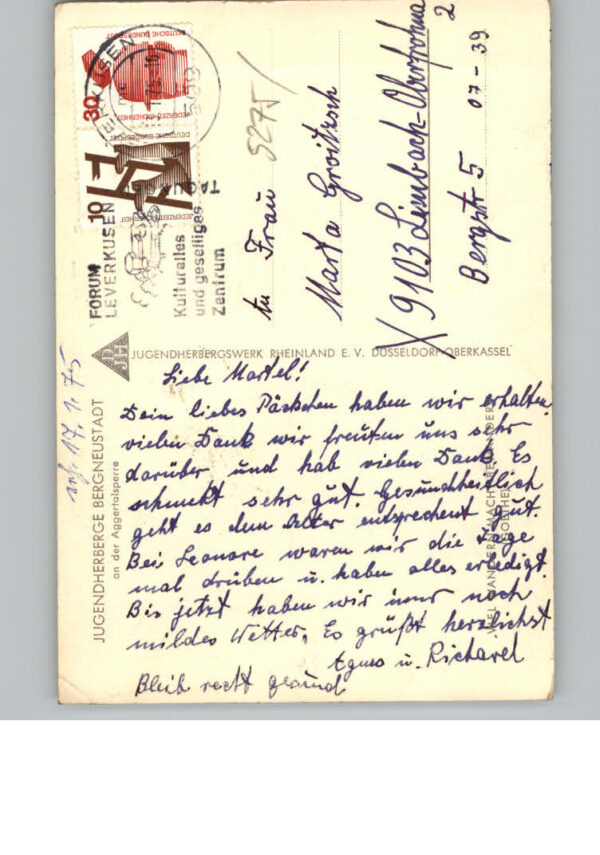 Liebe Martel!
Dein liebes Päckchen haben wir erhalten
vielen Dank wir freuten uns sehr
darüber und hab vielen Dank. Es
schmekt sehr gut. Gesundheitlich
geht es dem Alter entsprechent gut.
Bei Leonore waren wir die Tage
mal drüben u. haben alles erledigt.
Bis jetzt haben wir imer noch
mildes Wetter. Es grüßt herzlichst
Agnes u. Richard
Bleib recht gesund
An Frau
Marta Groitzsch
9103 Limbach-Oberfrohna 2
Bergstr 5 07-39
5275/
17.1.75
JUGENDHERBERGSWERK RHEINLAND E. V. DÜSSELDORF-OBERKASSEL
DJH
JUGENDHERBERGE BERGNEUSTADT
an der Aggertalsperre
FORUM
LEVERKUSEN
Kulturelles
und geselliges
Zentrum
LEVERKUSEN
509
30
DEUTSCHE BUNDESPOST
JEDERZEIT SICHERHEIT
10
DEUTSCHE BUNDESPOST
JEDERZEIT SICHERHEIT